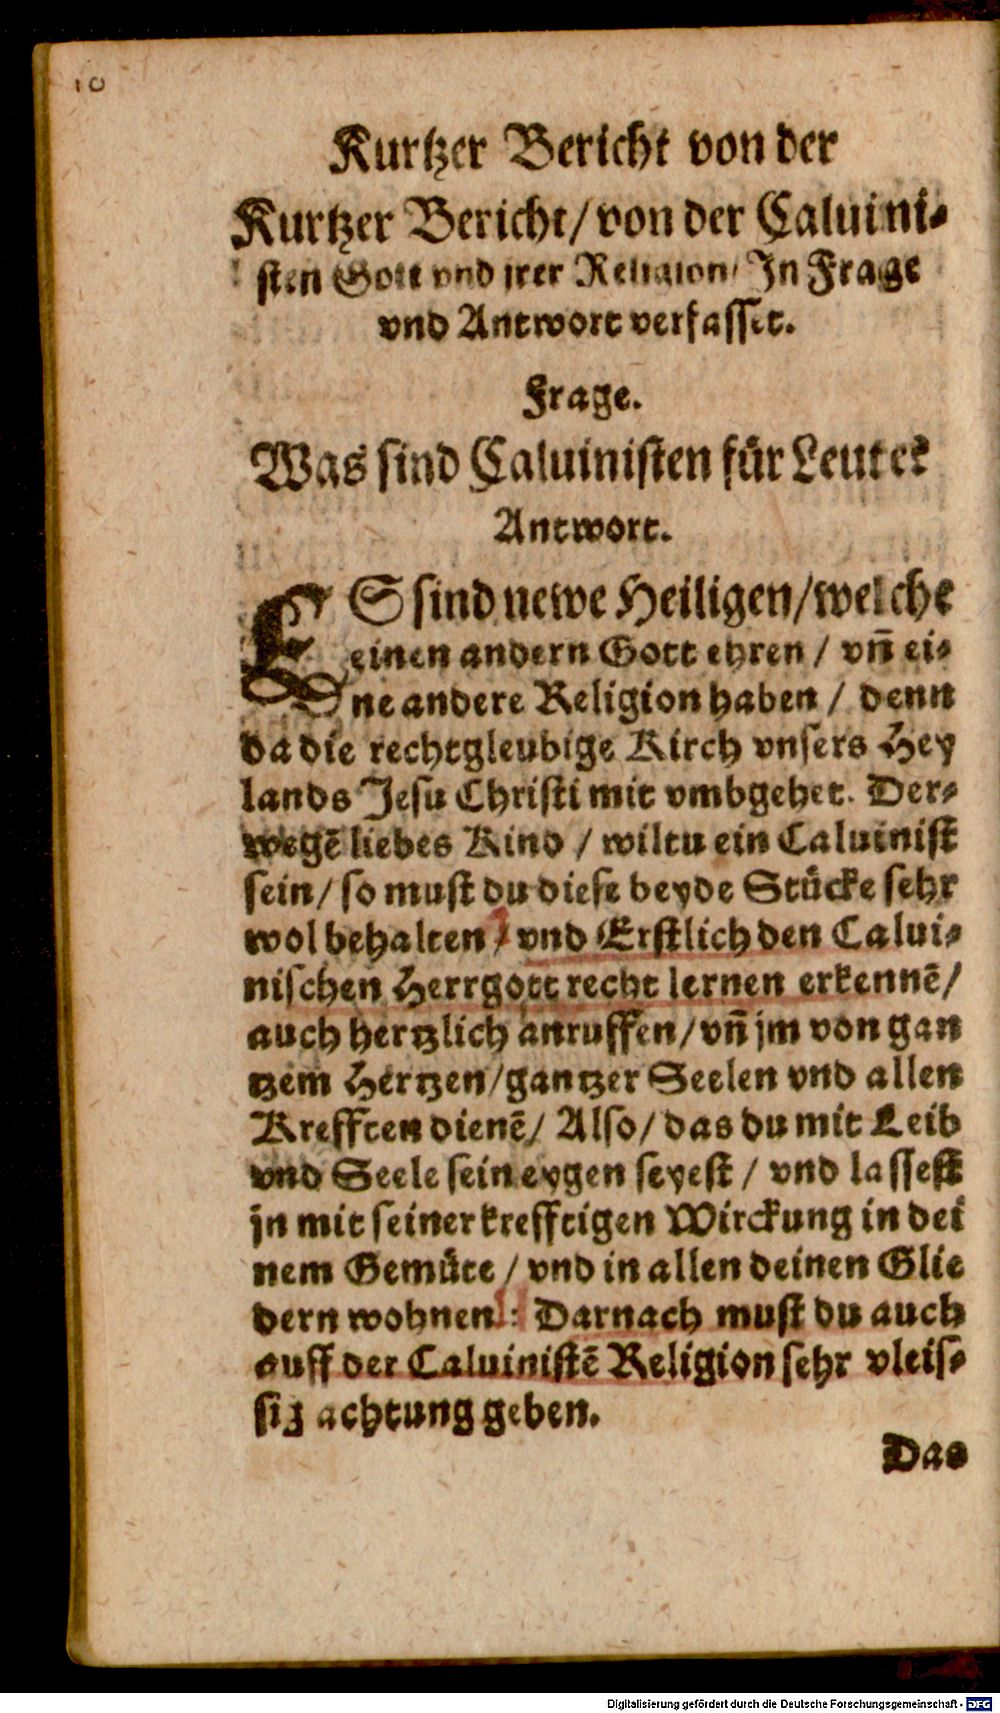 10
Kurtzer Bericht von der
Kurtzer Bericht/ von der Caluini-
sten Gott vnd jrer Religion/ In Frage
vnd Antwort verfasset.
Frage.
Was sind Caluinisten für Leute?
Antwort.
ES sind newe Heiligen/ welche
einen andern Gott ehren / vñ ei-
ne andere Religion haben / denn
da die rechtgleubige Kirch vnsers Hey
lands Jesu Christi mit vmbgehet. Der-
wegẽ liebes Kind / wiltu ein Caluinist
sein/ so must du diese beyde Stücke sehr
wol behalten / vnd Erstlich den Calui-
nischen Herrgott recht lernen erkennẽ/
auch hertzlich anruffen/ vñ jm von gan
tzem Hertzen/ gantzer Seelen vnd allen
Krefften dienẽ/ Also/ das du mit Leib
vnd Seele sein eygen seyest / vnd lassest
jn mit seiner krefftigen Wirckung in dei
nem Gemüte / vnd in allen deinen Glie
dern wohnen: Darnach must du auch
auff der Caluinistẽ Religion sehr vleis-
sig achtung geben.
Das
Digitalisierung gefördert durch die Deutsche Forschungsgemeinschaft - DFG